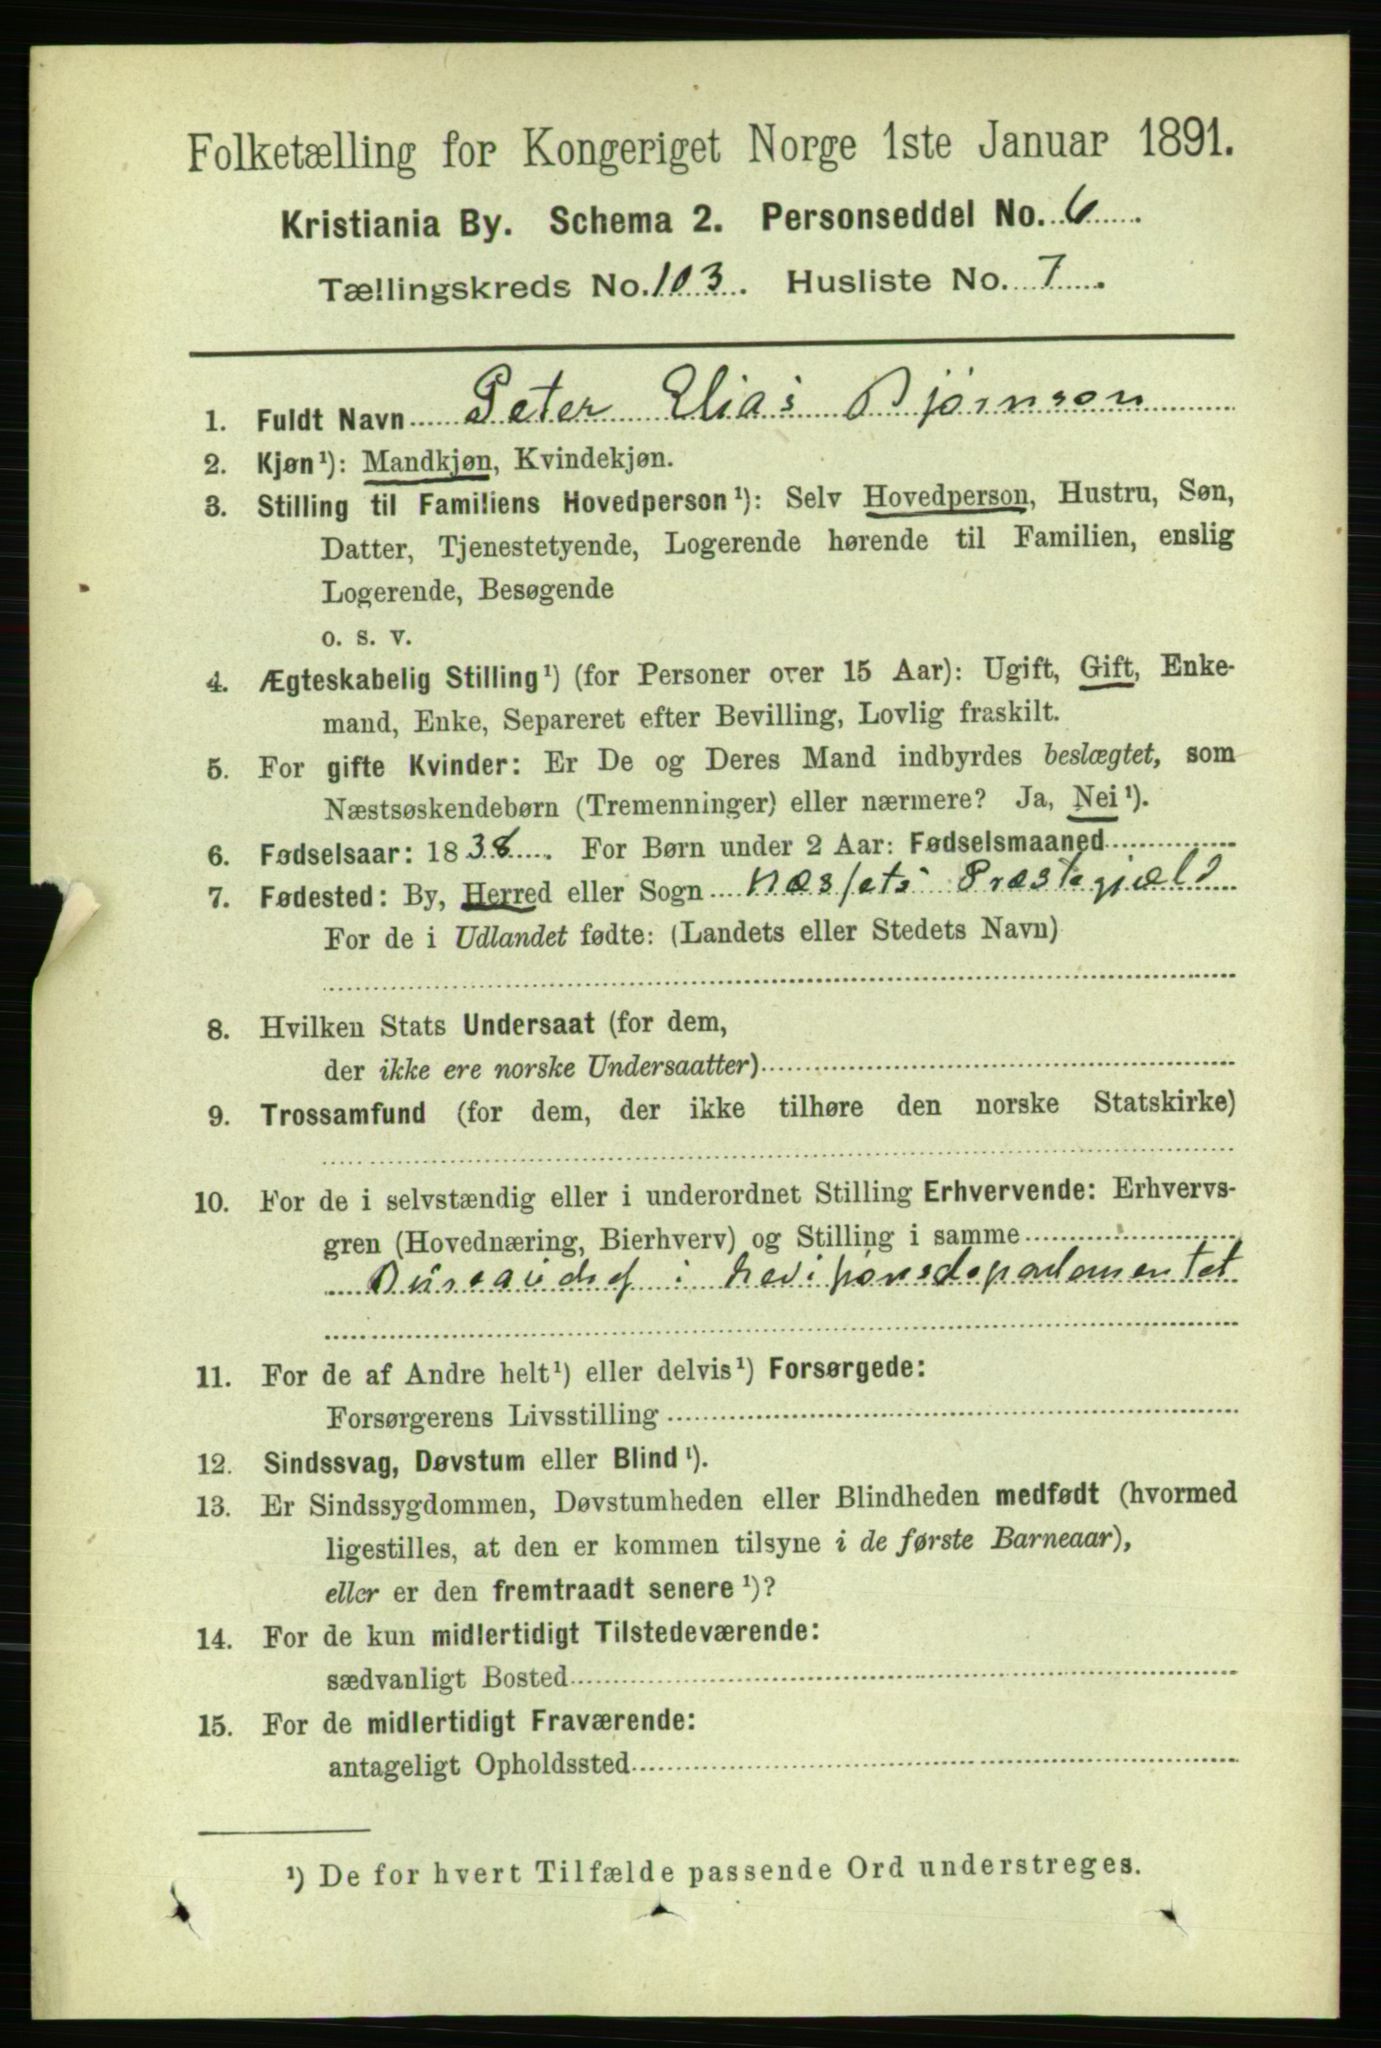 Folketælling for Kongeriget Norge 1ste Januar 1891.
Kristiania By. Schema 2. Personseddel No. 6.
Tællingskreds No. 103. Husliste No. 7.
1. Fuldt Navn Peter Elias Bjørnson
2. Kjøn¹): Mandkjøn, Kvindekjøn.
3. Stilling til Familiens Hovedperson¹): Selv Hovedperson, Hustru, Søn,
Datter, Tjenestetyende, Logerende hørende til Familien, enslig
Logerende, Besøgende
o. s. v.
4. Ægteskabelig Stilling¹) (for Personer over 15 Aar): Ugift, Gift, Enke-
mand, Enke, Separeret efter Bevilling, Lovlig fraskilt.
5. For gifte Kvinder: Er De og Deres Mand indbyrdes beslægtet, som
Næstsøskendebørn (Tremenninger) eller nærmere? Ja, Nei¹).
6. Fødselsaar: 1838. For Børn under 2 Aar: Fødselsmaaned
7. Fødested: By, Herred eller Sogn Næssets Præstegjæld
For de i Udlandet fødte: (Landets eller Stedets Navn)
8. Hvilken Stats Undersaat (for dem,
der ikke ere norske Undersaatter)
9. Trossamfund (for dem, der ikke tilhøre den norske Statskirke)
10. For de i selvstændig eller i underordnet Stilling Erhvervende: Erhvervs-
gren (Hovednæring, Bierhverv) og Stilling i samme
Bureauchef i Revisionsdepartementet
11. For de af Andre helt¹) eller delvis¹) Forsørgede:
Forsørgerens Livsstilling
12. Sindssvag, Døvstum eller Blind¹).
13. Er Sindssygdommen, Døvstumheden eller Blindheden medfødt (hvormed
ligestilles, at den er kommen tilsyne i de første Barneaar),
eller er den fremtraadt senere¹)?
14. For de kun midlertidigt Tilstedeværende:
sædvanligt Bosted
15. For de midlertidigt Fraværende:
antageligt Opholdssted
¹) De for hvert Tilfælde passende Ord understreges.